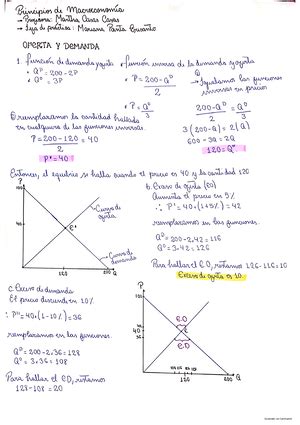 Principios de Macroeconomía
→ Profesora: Martha Casas Casas
→ Jefa de prácticas: Mariana Panta
OFERTA Y DEMANDA
1. función de demanda y oferta
• Qᴰ = 200-2P
• Qᴼ = 3P
• función inversa de la demanda y oferta
• P = 200-Qᴰ / 2
• P = Qᴼ / 3
Q
→ Igualamos las funciones inversas en precios
200-Qᴰ / 2 = Qᴼ / 3
3(200-Q) = 2(Q)
600-3Q = 2Q
120 = Qᴱ
O reemplazamos la cantidad hallada
en cualquiera de las funciones inversas.
P = 200-120 / 2 = 40
P* = 40
Entonces, el equilibrio se halla cuando el precio es 40 y la cantidad 120
P
100
40
E*
Curva de oferta
Curva de demanda
120
200
Q
b. Exceso de oferta (EO)
Aumenta el precio en 5%
∴ P' = 40·(1+5%) = 42
reemplazamos en las funciones.
Qᴰ = 200-2·42 = 116
Qᴼ = 3·42 = 126
Para hallar el EO, restamos 126-116 = 10
Exceso de oferta es 10.
c. Exceso de demanda
El precio desciende en 10%
∴ P'' = 40·(1-10%) = 36
reemplazamos en las funciones
Qᴰ = 200-2·36 = 128
Qᴼ = 3·36 = 108
Para hallar el ED, restamos
128-108 = 20
P
100
42
40
36
EO
E
ED
200
Q